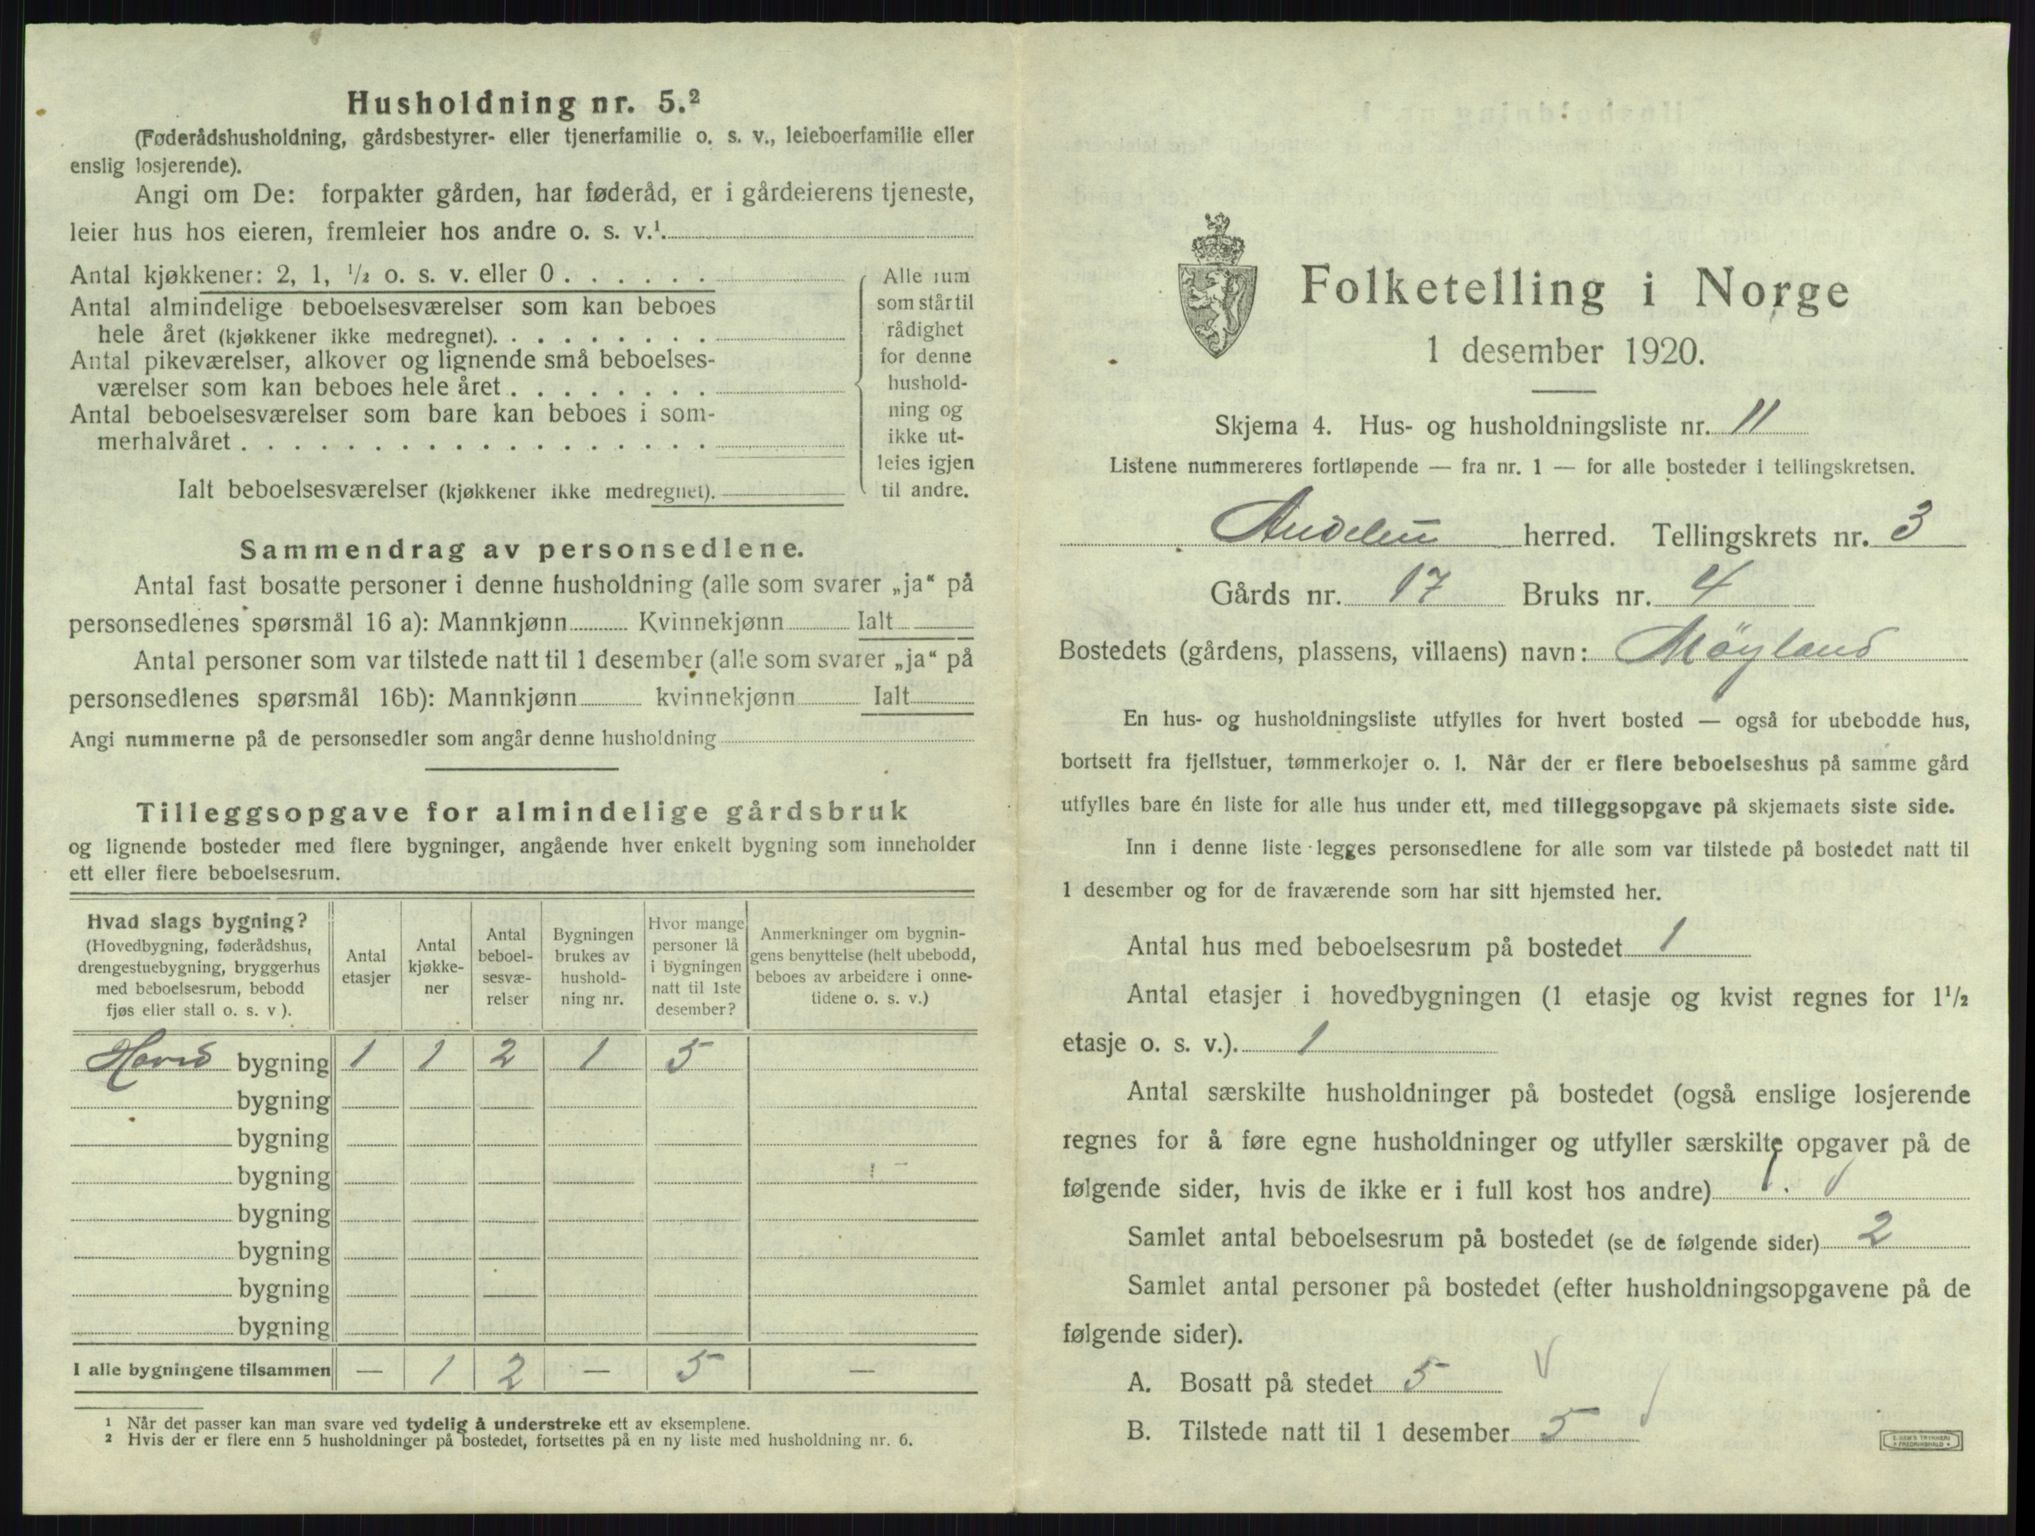 Husholdning nr. 5.²
(Føderådshusholdning, gårdsbestyrer- eller tjenerfamilie o. s. v., leieboerfamilie eller
enslig losjerende).
Angi om De: forpakter gården, har føderåd, er i gårdeierens tjeneste,
leier hus hos eieren, fremleier hos andre o. s. v.¹
Antal kjøkkener: 2, 1, ½ o. s. v. eller 0 . . . . . .
Antal almindelige beboelsesværelser som kan beboes
hele året (kjøkkener ikke medregnet). . . . . . . . .
Antal pikeværelser, alkover og lignende små beboelses-
værelser som kan beboes hele året . . . . . . . .
Antal beboelsesværelser som bare kan beboes i som-
merhalvåret . . . . . . . . . . . . . . . . . .
Ialt beboelsesværelser (kjøkkener ikke medregnet).
Alle rum
som står til
rådighet
for denne
hushold-
ning og
ikke ut-
leies igjen
til andre.
Sammendrag av personsedlene.
Antal fast bosatte personer i denne husholdning (alle som svarer „ja“ på
personsedlenes spørsmål 16 a): Mannkjønn Kvinnekjønn Ialt
Antal personer som var tilstede natt til 1 desember (alle som svarer „ja“ på
personsedlenes spørsmål 16b): Mannkjønn kvinnekjønn Ialt
Angi nummerne på de personsedler som angår denne husholdning
Tilleggsopgave for almindelige gårdsbruk
og lignende bosteder med flere bygninger, angående hver enkelt bygning som inneholder
ett eller flere beboelsesrum.
Hvad slags bygning?
(Hovedbygning, føderådshus,
drengestuebygning, bryggerhus
med beboelsesrum, bebodd
fjøs eller stall o. s. v ).
Antal
etasjer
Antal
kjøkke-
ner
Antal
beboel-
sesvæ-
relser
Bygningen
brukes av
hushold-
ning nr.
Hvor mange
personer lå
i bygningen
natt til 1ste
desember?
Anmerkninger om bygnin-
gens benyttelse (helt ubebodd,
beboes av arbeidere i onne-
tidene o. s. v.)
Hoved bygning 1 1 2 1 5
bygning
bygning
bygning
bygning
bygning
bygning
bygning
I alle bygningene tilsammen — 1 2 — 5 —
¹ Når det passer kan man svare ved tydelig å understreke ett av eksemplene.
² Hvis der er flere enn 5 husholdninger på bostedet, fortsettes på en ny liste med husholdning nr. 6.
Folketelling i Norge
1 desember 1920.
Skjema 4. Hus- og husholdningsliste nr. 11
Listene nummereres fortløpende — fra nr. 1 — for alle bosteder i tellingskretsen.
herred. Tellingskrets nr. 3
Gårds nr. 17 Bruks nr. 4
Bostedets (gårdens, plassens, villaens) navn: Möyland
En hus- og husholdningsliste utfylles for hvert bosted — også for ubebodde hus,
bortsett fra fjellstuer, tømmerkojer o. l. Når der er flere beboelseshus på samme gård
utfylles bare én liste for alle hus under ett, med tilleggsopgave på skjemaets siste side.
Inn i denne liste legges personsedlene for alle som var tilstede på bostedet natt til
1 desember og for de fraværende som har sitt hjemsted her.
Antal hus med beboelsesrum på bostedet 1
Antal etasjer i hovedbygningen (1 etasje og kvist regnes for 1½
etasje o. s. v.). 1
Antal særskilte husholdninger på bostedet (også enslige losjerende
regnes for å føre egne husholdninger og utfyller særskilte opgaver på de
følgende sider, hvis de ikke er i full kost hos andre) 1.
Samlet antal beboelsesrum på bostedet (se de følgende sider) 2
Samlet antal personer på bostedet (efter husholdningsopgavene på de
følgende sider).
A. Bosatt på stedet 5
B. Tilstede natt til 1 desember 5